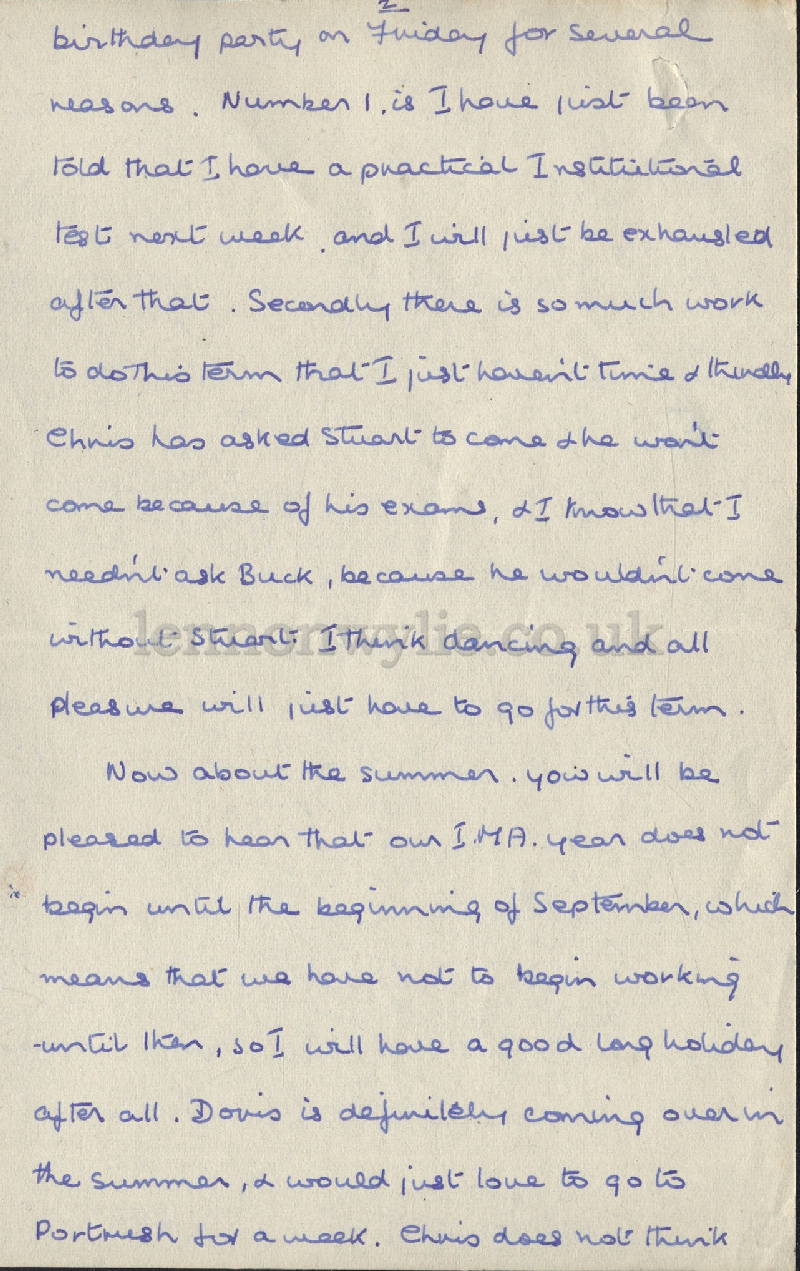 2
birthday party on Friday for several
reasons. Number 1. is I have just been
told that I have a practical Institutional
test next week, and I will just be exhausted
after that. Secondly there is so much work
to do this term that I just haven't time & thirdly
Chris has asked Stuart to come & he won't
come because of his exams, & I know that I
needn't ask Buck, because he wouldn't come
without Stuart. I think dancing and all
lennonwylie.co.uk
pleasure will just have to go for this term.
Now about the summer. you will be
pleased to hear that our I.M.A. year does not
begin until the beginning of September, which
means that we have not to begin working
until then, so I will have a good long holiday
after all. Doris is definitely coming over in
the summer, & would just love to go to
Portrush for a week. Chris does not think